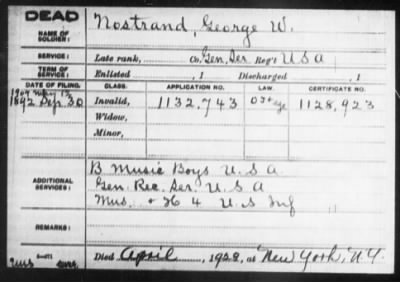 DEAD
NAME OF SOLDIER: Nostrand, George W.
SERVICE: Late rank, Co. Gen. Ser. Reg't U S A
TERM OF SERVICE: Enlisted , 1 Discharged , 1
DATE OF FILING. CLASS. APPLICATION NO. LAW. CERTIFICATE NO.
1892 Sep. 30 Invalid, 1132,743 1128,923
Widow,
Minor,
ADDITIONAL SERVICES: B Music Boys U.S.A.
Gen. Rec. Ser. U.S.A
Mus. + H 4 U.S Inf
REMARKS:
Died April, 1928, at New York, N.Y.